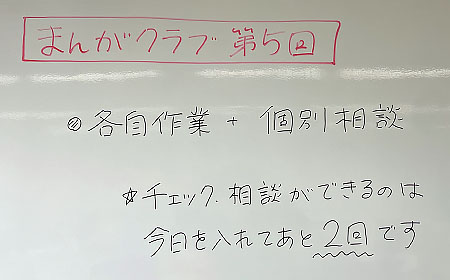 まんがクラブ 第5回
◎各自作業 + 個別相談
☆チェック.相談ができるのは
今日を入れてあと2回です